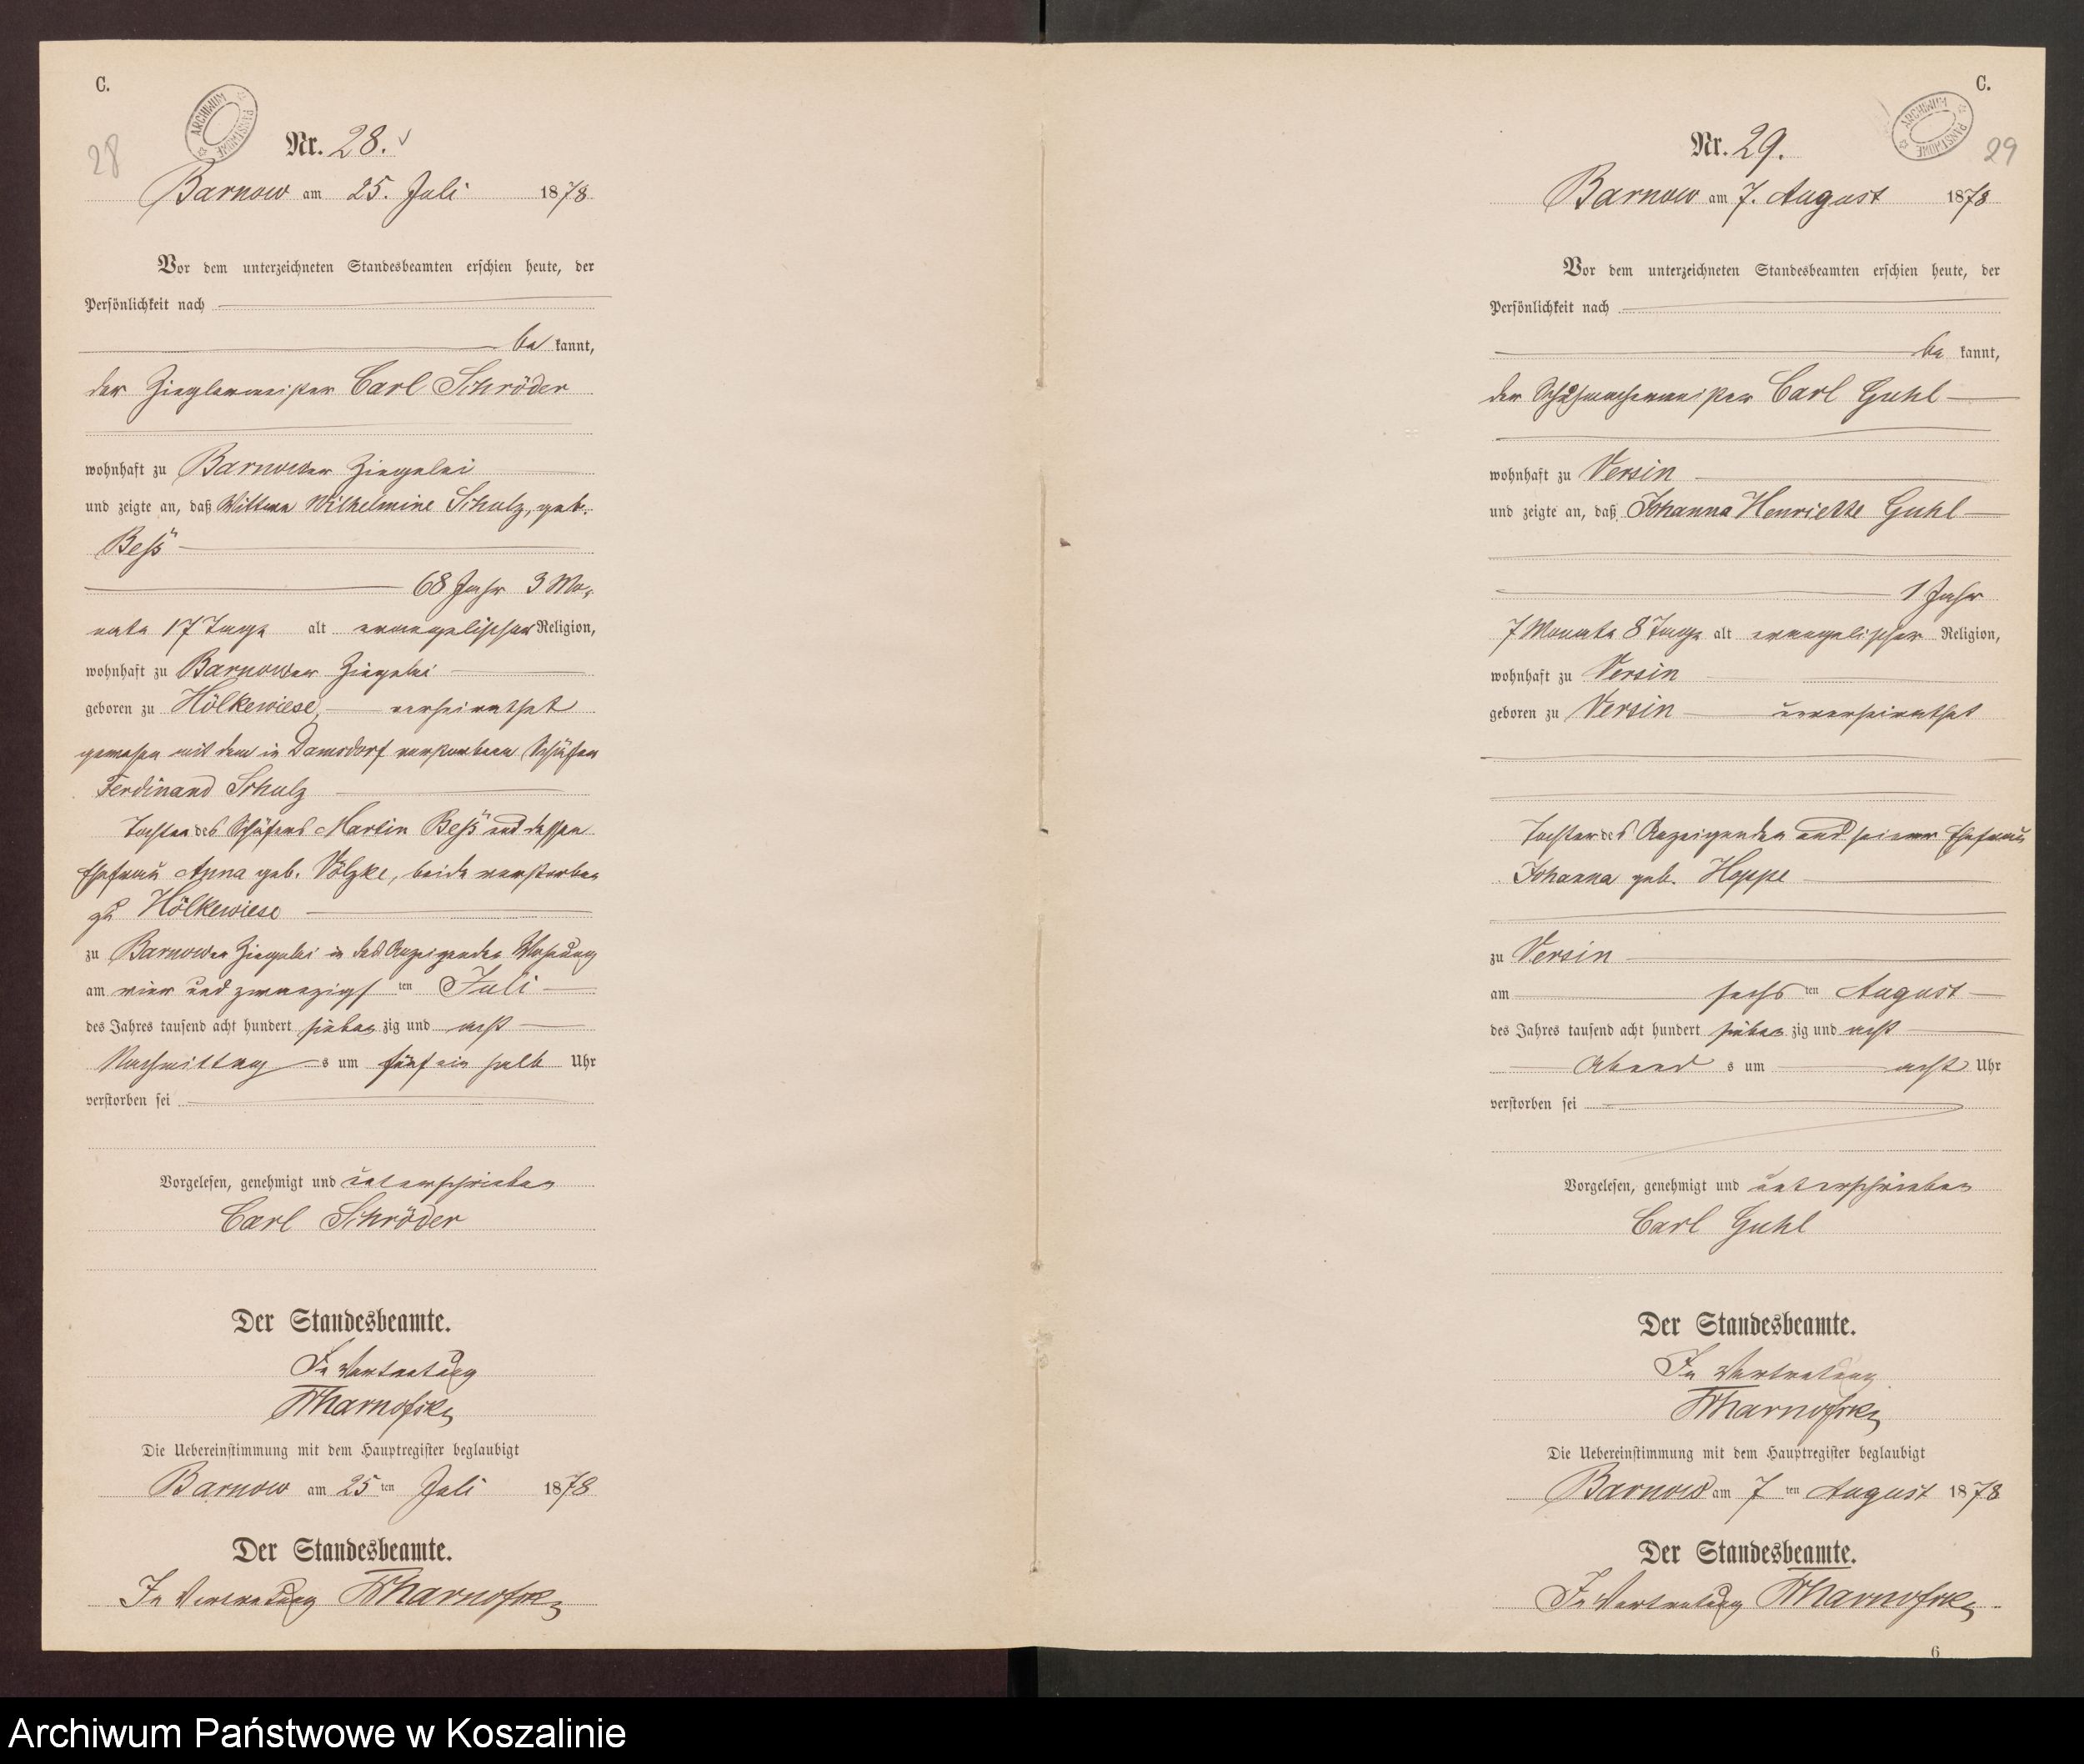 C.
ARCHIWUM PAŃSTWOWE
28
Nr. 28.
Barnow am 25. Juli 1878
Vor dem unterzeichneten Standesbeamten erschien heute, der
Persönlichkeit nach
be kannt,
der Zieglermeister Carl Schröder
wohnhaft zu Barnower Ziegelei
und zeigte an, daß Wittwe Wilhelmine Schulz, geb.
Beß
68 Jahr 3 Mo-
nate 17 Tage alt evangelischer Religion,
wohnhaft zu Barnower Ziegelei
geboren zu Hölkewiese, verheirathet
gewesen mit dem in Damsdorf verstorbenen Schäfer
Ferdinand Schulz
Tochter des Schäfers Martin Beß und dessen
Ehefrau Anna geb. Völzke, beide verstorben
zu Hölkewiese
zu Barnower Ziegelei in des Anzeigenden Wohnung
am vier und zwanzigs ten Juli
des Jahres tausend acht hundert sieben zig und acht
Nachmittag s um fünf ein halb Uhr
verstorben sei
Vorgelesen, genehmigt und unterschrieben
Carl Schröder
Der Standesbeamte.
In Vertretung
Die Uebereinstimmung mit dem Hauptregister beglaubigt
Barnow am 25 ten Juli 1878
Der Standesbeamte.
In Vertretung
C.
ARCHIWUM PAŃSTWOWE
29
Nr. 29.
Barnow am 7. August 1878
Vor dem unterzeichneten Standesbeamten erschien heute, der
Persönlichkeit nach
be kannt,
der Schuhmachermeister Carl Guhl
wohnhaft zu Versin
und zeigte an, daß Johanna Henriette Guhl
1 Jahr
7 Monate 8 Tage alt evangelischer Religion,
wohnhaft zu Versin
geboren zu Versin unverheirathet
Tochter des Anzeigenden und seiner Ehefrau
Johanna geb. Hoppe
zu Versin
am sechs ten August
des Jahres tausend acht hundert sieben zig und acht
Abend s um acht Uhr
verstorben sei
Vorgelesen, genehmigt und unterschrieben
Carl Guhl
Der Standesbeamte.
In Vertretung
Die Uebereinstimmung mit dem Hauptregister beglaubigt
Barnow am 7 ten August 1878
Der Standesbeamte.
In Vertretung
6
Archiwum Państwowe w Koszalinie